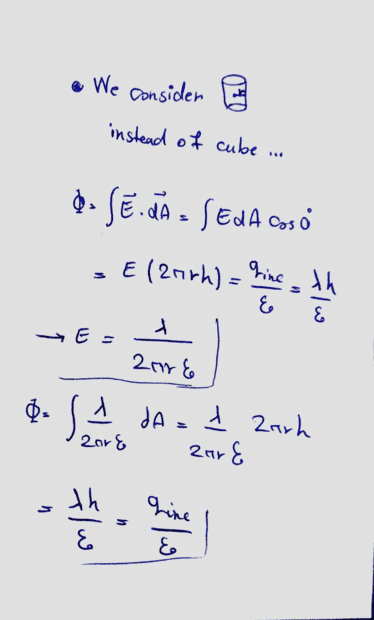 • We consider
instead of cube ...
Φ = ∫E⃗.dA⃗ = ∫EdA Cos 0°
= E (2πrh) = qinc/ε = λh/ε
→ E = λ/2πrε
Φ = ∫ λ/2πrε dA = λ/2πrε 2πrh
= λh/ε = qinc/ε